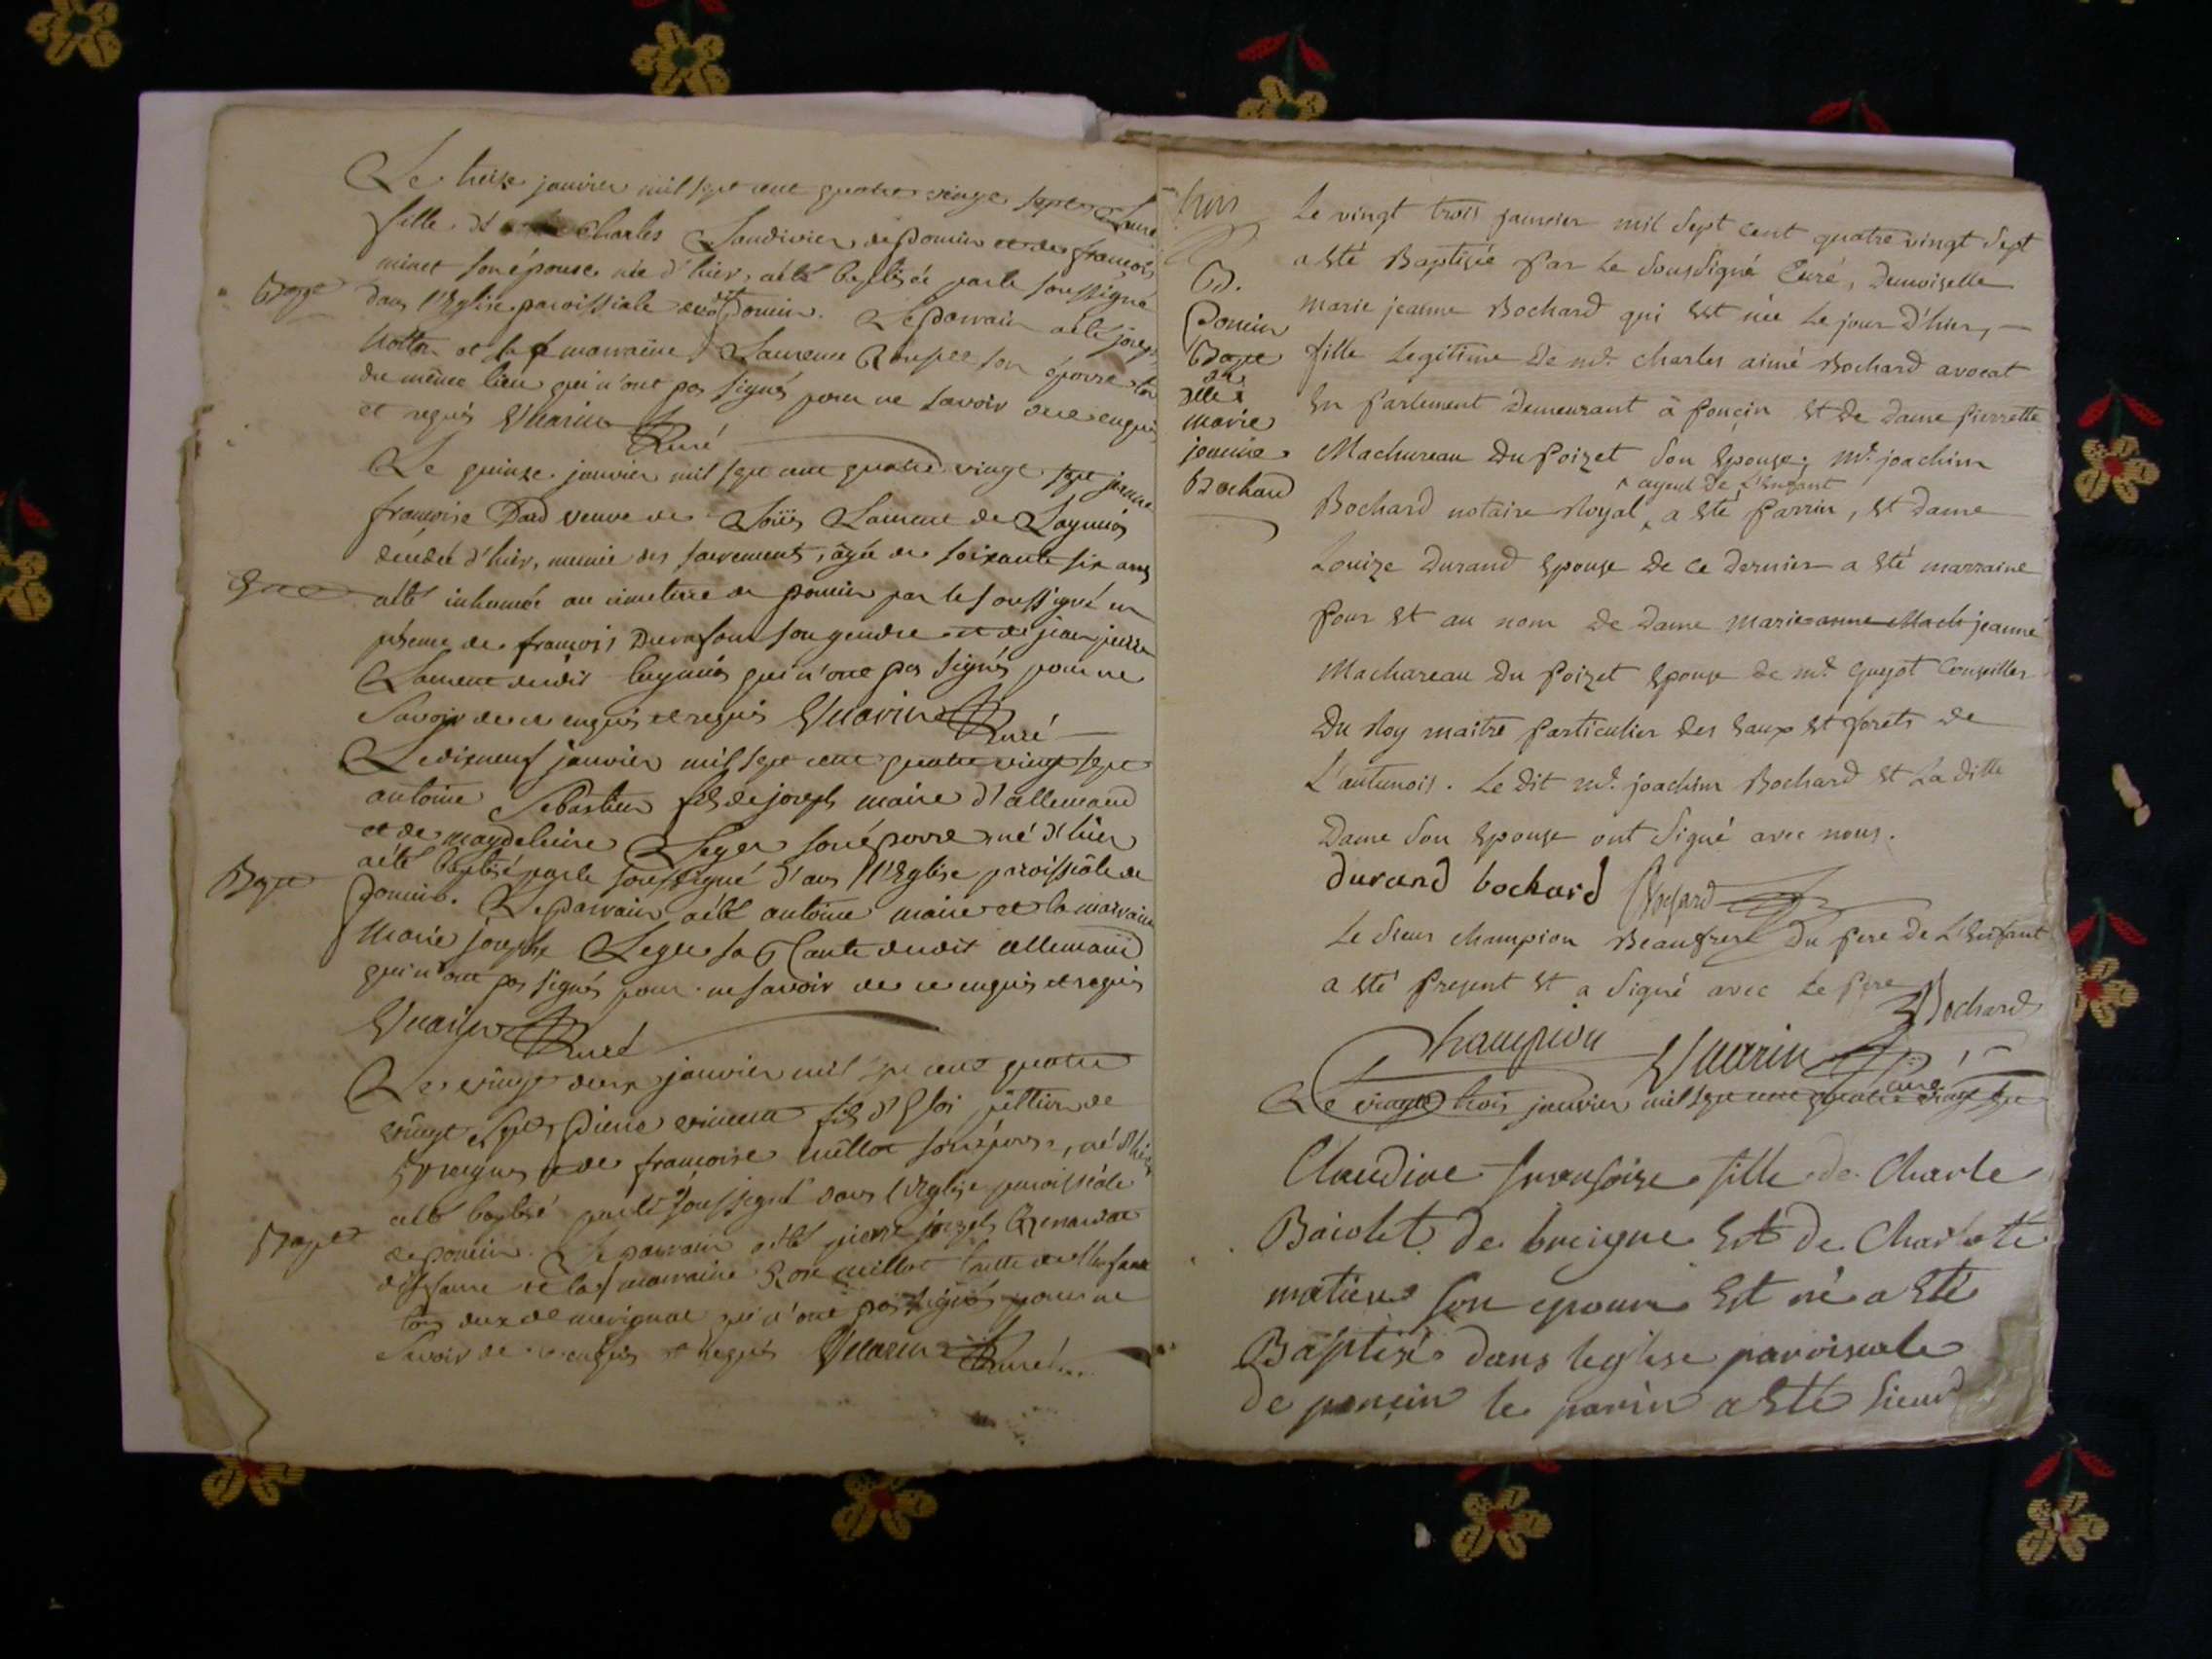 Le treize janvier mil sept cent quatre vingt sept
fille de Charles Landivier de Poncin et de françoise
minet son épouse née d'hier, a été baptisée par le soussigné
Bapt
dans l'Eglise paroissiale dudit Poncin. Le parrain a été joseph
et la marraine Laurence son épouse
du même lieu qui n'ont pas signés pour ne savoir de ce enquis
et requis Quarin Curé
Le quinze janvier mil sept cent quatre vingt sept jeanne
françoise veuve de Loüis Laurent de
décédée d'hier, munie des sacrements, âgée de soixante six ans
a été inhumée au cimetiere de poncin par le soussigné en
présence de françois son gendre et de jean pierre
Laurent dudit qui n'ont pas signés pour ne
savoir de ce enquis et requis Quarin Curé
Le dixneuf janvier mil sept cent quatre vingt sept
antoine Sebastien fils de joseph maire d'allemand
et de magdeleine Leger son épouse né d'hier
Bapt
a été baptisé par le soussigné dans l'Eglise paroissiale de
poncin. Le parrain a été antoine maire et la marraine
Marie josephe Leger sa tante dudit allemand
qui n'ont pas signés pour ne savoir de ce enquis et requis
Quarin Curé
Le vingt deux janvier mil sept cent quatre
vingt sept Pierre vincent fils d'Eloi de
et de françoise millot son épouse, né d'hier
a été baptisé par le soussigné dans l'Eglise paroissiale
Bapt
de poncin. Le parrain a été pierre joseph
et la marraine Rose millot tante de l'enfant
tous deux de merignat qui n'ont pas signés pour ne
savoir de ce enquis et requis Quarin Curé
trois
B.
Poncin
Bapt
de
Dlle
marie
jeanne
Bochard
Le vingt trois janvier mil Sept cent quatre vingt Sept
a Eté Baptisée par Le Soussigné Curé, Demoiselle
marie jeanne Bochard qui Est née Le jour d'hier,
fille Legitime de mr. charles aimé Bochard avocat
En parlement Demeurant à poncin Et de Dame pierrette
Machureau Du Poizet Son Epouse; mr. joachim
ayeul de L'Enfant
Bochard notaire Royal, a Eté parrin, Et Dame
Louize Durand Epouse De ce Dernier a Eté marraine
pour Et au nom De Dame marie anne Mach jeanne
Machareau Du Poizet Epouse De mr. Guyot Conseiller
Du Roy maitre particulier Des Eaux Et forets De
L'autunois. Le Dit mr. joachim Bochard Et La ditte
Dame Son Epouse ont Signé avec nous.
durand bochard Bochard
Le Sieur champion Beaufrere Du pere De L'Enfant
a Eté present Et a Signé avec Le pere
Bochard
Champion Quarin curé
Le vingt trois janvier mil sept cent quatre vingt sept
Claudine fransoise fille de Charle
Baiolet de breigne Et de Charlote
matieu son epouse Est né a Eté
Baptisé dans leglise paroisiale
de poncin le parin a Eté Sieur